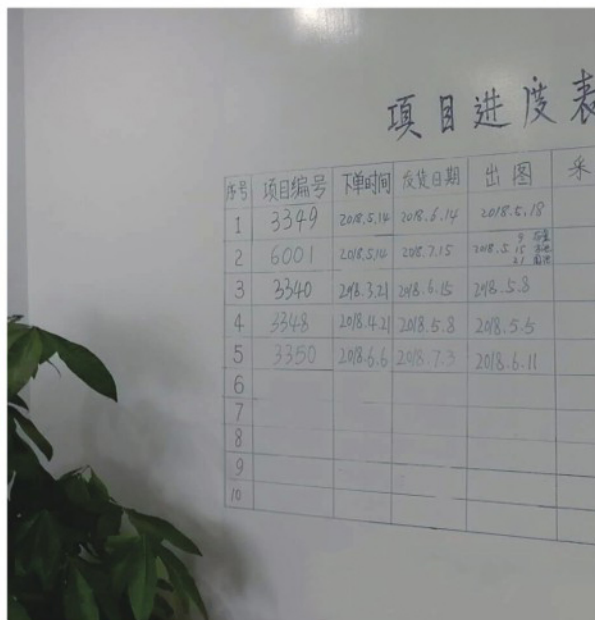 项目进度表
序号 项目编号 下单时间 发货日期 出图 采
1 3349 2018.5.14 2018.6.14 2018.5.18
2 6001 2018.5.14 2018.7.15 2018.5.15
9
21
3 3340 2018.3.21 2018.6.15 2018.5.8
4 3348 2018.4.21 2018.5.8 2018.5.5
5 3350 2018.6.6 2018.7.3 2018.6.11
6
7
8
9
10